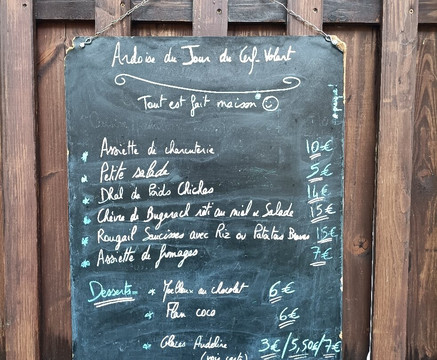 Ardoise du Jour du Cerf-Volant
Tout est fait maison*
* Assiette de charcuterie 10€
* Petite salade 5€
* Dhal de Poids Chiches 14€
* Chèvre de Bugarach rôti au miel & Salade 15€
* Rougail Saucisses avec Riz ou Patatas Bravas 15€
* Assiette de fromages 7€
Desserts * Moelleux au chocolat 6€
* Flan coco 6€
* Glaces 3€/5,50€/7€
(voir carte)